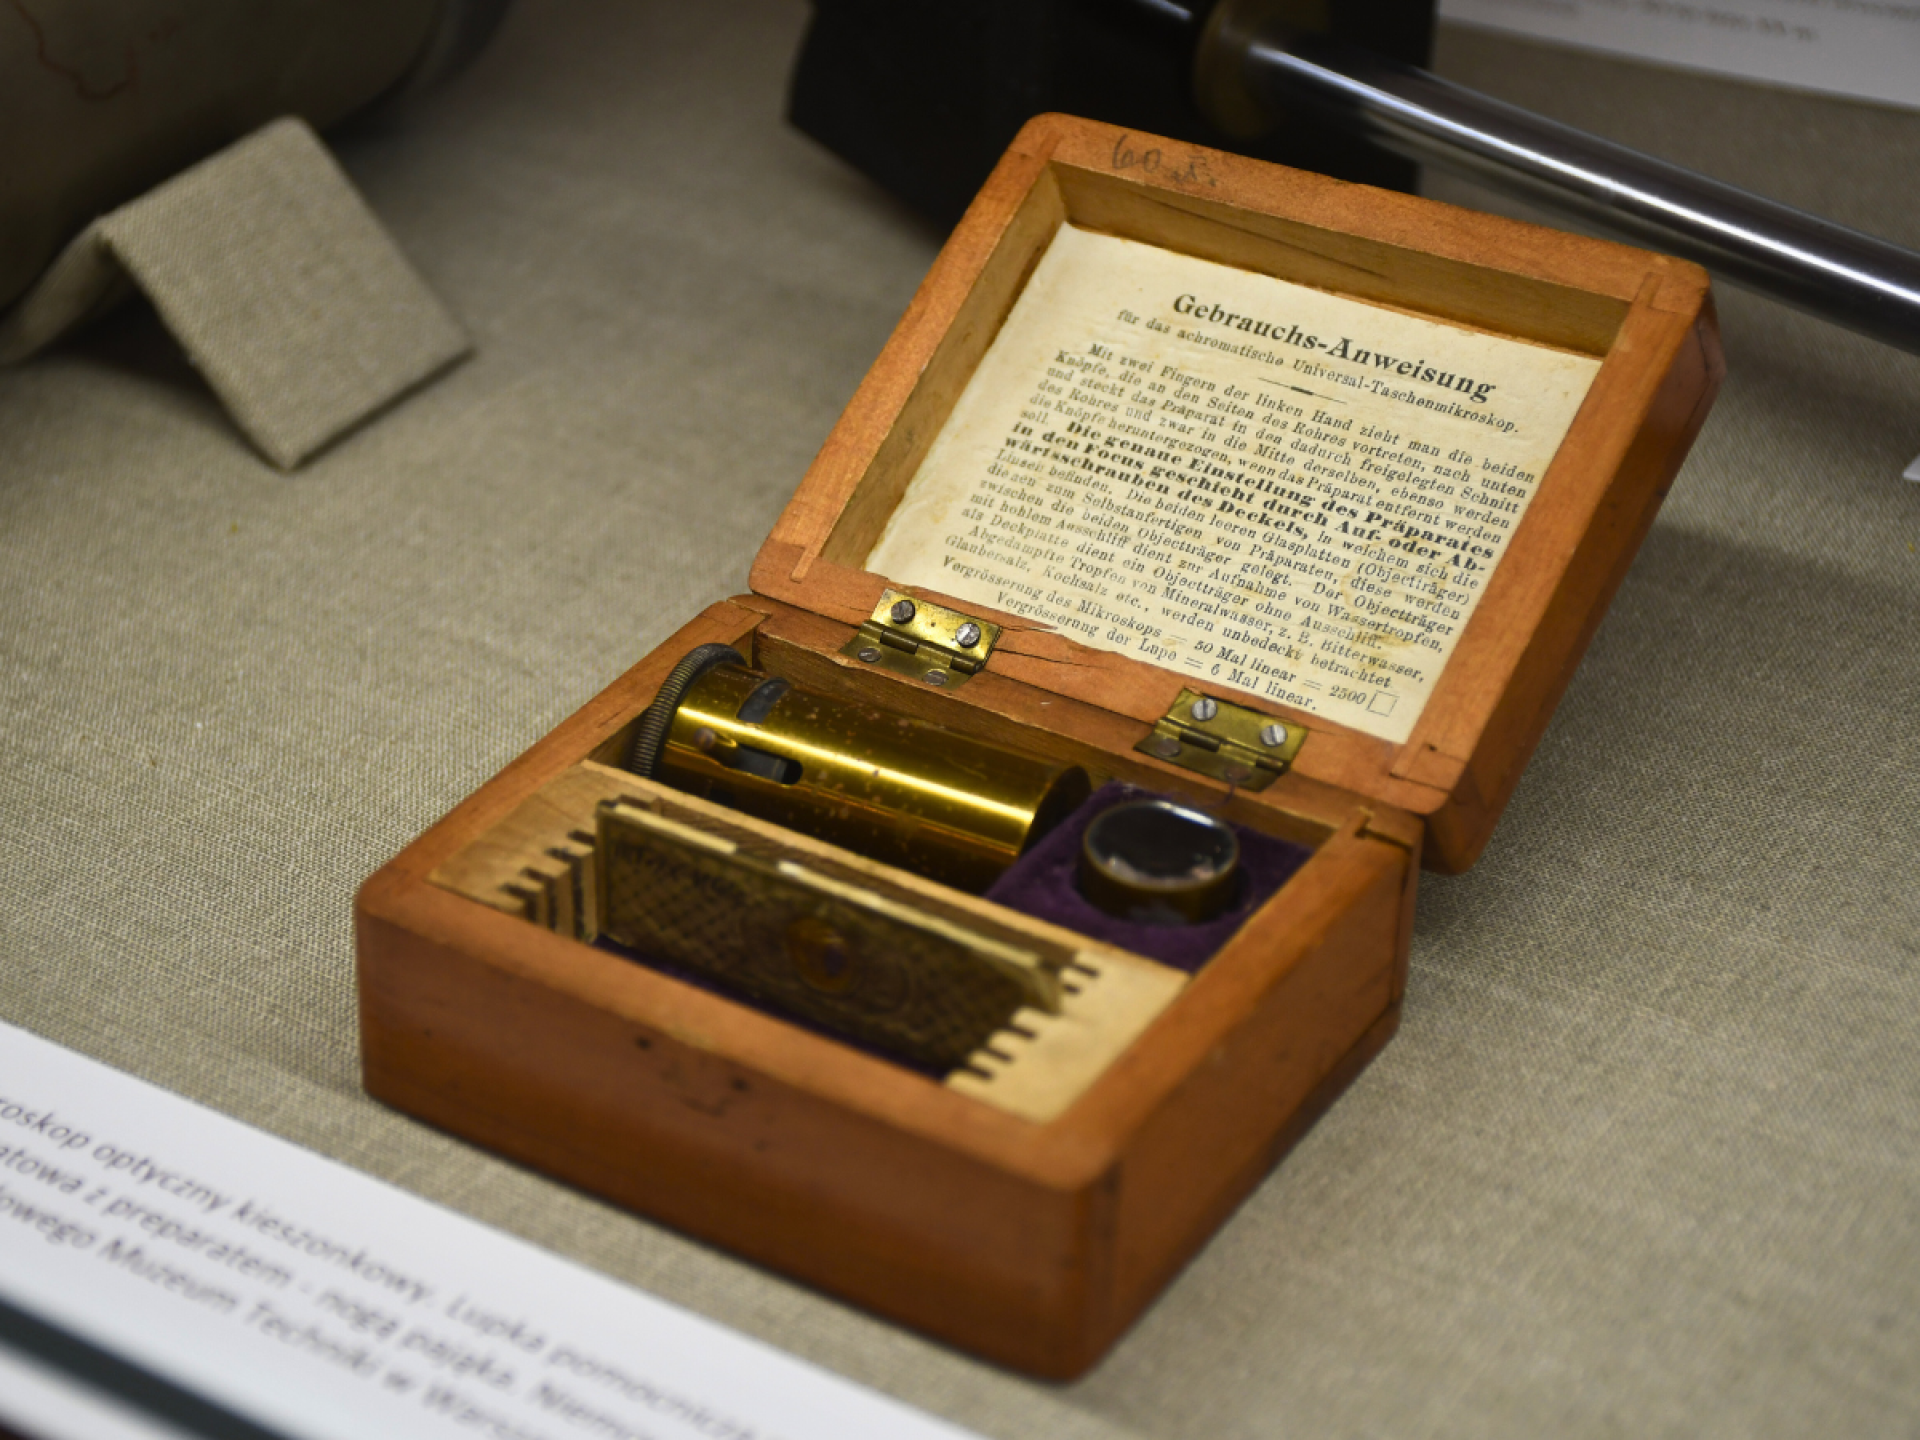 Gebrauchs-Anweisung
für das achromatische Universal-Taschenmikroskop.
Mit zwei Fingern der linken Hand zieht man die beiden
Knöpfe, die an den Seiten des Rohres vortreten, nach unten
und steckt das Präparat in den dadurch freigelegten Schnitt
des Rohres und zwar in die Mitte derselben, ebenso werden
die Knöpfe heruntergezogen, wenn das Präparat entfernt werden
soll. Die genaue Einstellung des Präparates
in den Focus geschieht durch Auf- oder Ab-
wärtsschrauben des Deckels, in welchem sich die
Linsen befinden. Die beiden leeren Glasplatten (Objectträger)
dienen zum Selbstanfertigen von Präparaten, diese werden
zwischen die beiden Objectträger gelegt. Der Objectträger
mit hohlem Ausschliff dient zur Aufnahme von Wassertropfen,
als Deckplatte dient ein Objectträger ohne Ausschliff.
Abgedampfte Tropfen von Mineralwasser, z. B. Bitterwasser,
Glaubersalz, Kochsalz etc., werden unbedeckt betrachtet
Vergrösserung des Mikroskops = 50 Mal linear = 2500 □
Vergrösserung der Lupe = 6 Mal linear.
optyczny kieszonkowy. Lupka
z preparatem - noga pająka.
Muzeum Techniki w